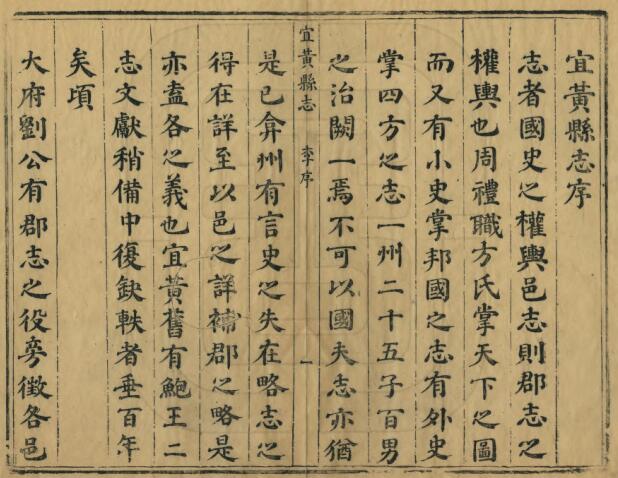 宜黃縣志序
志者國史之權輿邑志則郡志之
權輿也周禮職方氏掌天下之圖
而又有小史掌邦國之志有外史
掌四方之志一州二十五子百男
之治闕一焉不可以國夫志亦猶
宜黃縣志 李序 一
是已弇州有言史之失在略志之
得在詳至以邑之詳補郡之略是
亦盍各之義也宜黃舊有鮑王二
志文獻稍備中復缺軼者垂百年
矣頃
大府劉公有郡志之役旁徵各邑